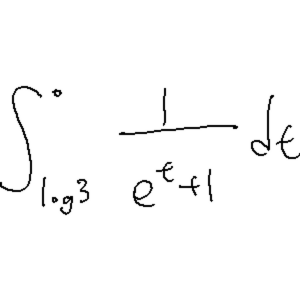 ∫_{log3}^{0} \frac{1}{e^t+1} dt